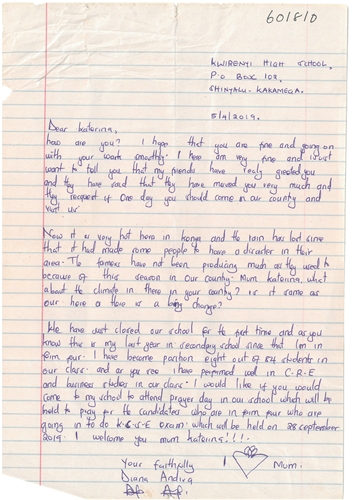 60/8/0
KWIRENYI HIGH SCHOOL,
P.O BOX 102,
SHINYALU - KAKAMEGA.
5/4/2019.
Dear Katarina,
how are you? I hope that you are fine and going on
with your work smoothly. I here am very fine and I just
want to tell you that my friends have really greeted you
and they have said that they have moved you very much and
they request if one day you should come in our country and
visit us.
Now it is very hot here in Kenya and the rain has lost since
that it had made some people to have a disaster in their
area. The farmers have not been producing much as they used to
because of this season in our country. Mum Katarina, what
about the climate in there in your country? is it same as
our here or there is a big change?
We have just closed our school for the first time and as you
know this is my last year in secondary school since that I'm in
form four. I have become position eight out of 54 students in
our class and as you see I have performed well in C.R.E
and business studies in our class. I would like if you would
come to my school to attend prayer day in our school which will be
held to pray for the candidates who are in form four who are
going in to do K.C.S.E Exam which will be held on 28 september
2019. I welcome you mum Katarina!!!.
Your faithfully I Mum.
Diana Andira